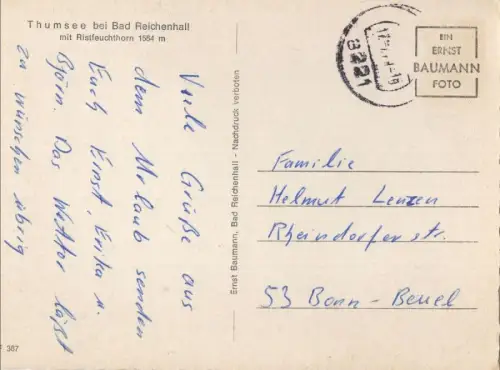 Thumsee bei Bad Reichenhall
mit Ristfeuchthorn 1584 m
Viele Grüße aus
dem Urlaub senden
Euch Ernst, Erika u.
Björn. Das Wetter läßt
zu wünschen übrig
Ernst Baumann, Bad Reichenhall - Nachdruck verboten
8221
EIN
ERNST
BAUMANN
FOTO
Familie
Helmut Lenzen
Rheindorfer str.
53 Bonn-Beuel
F 367